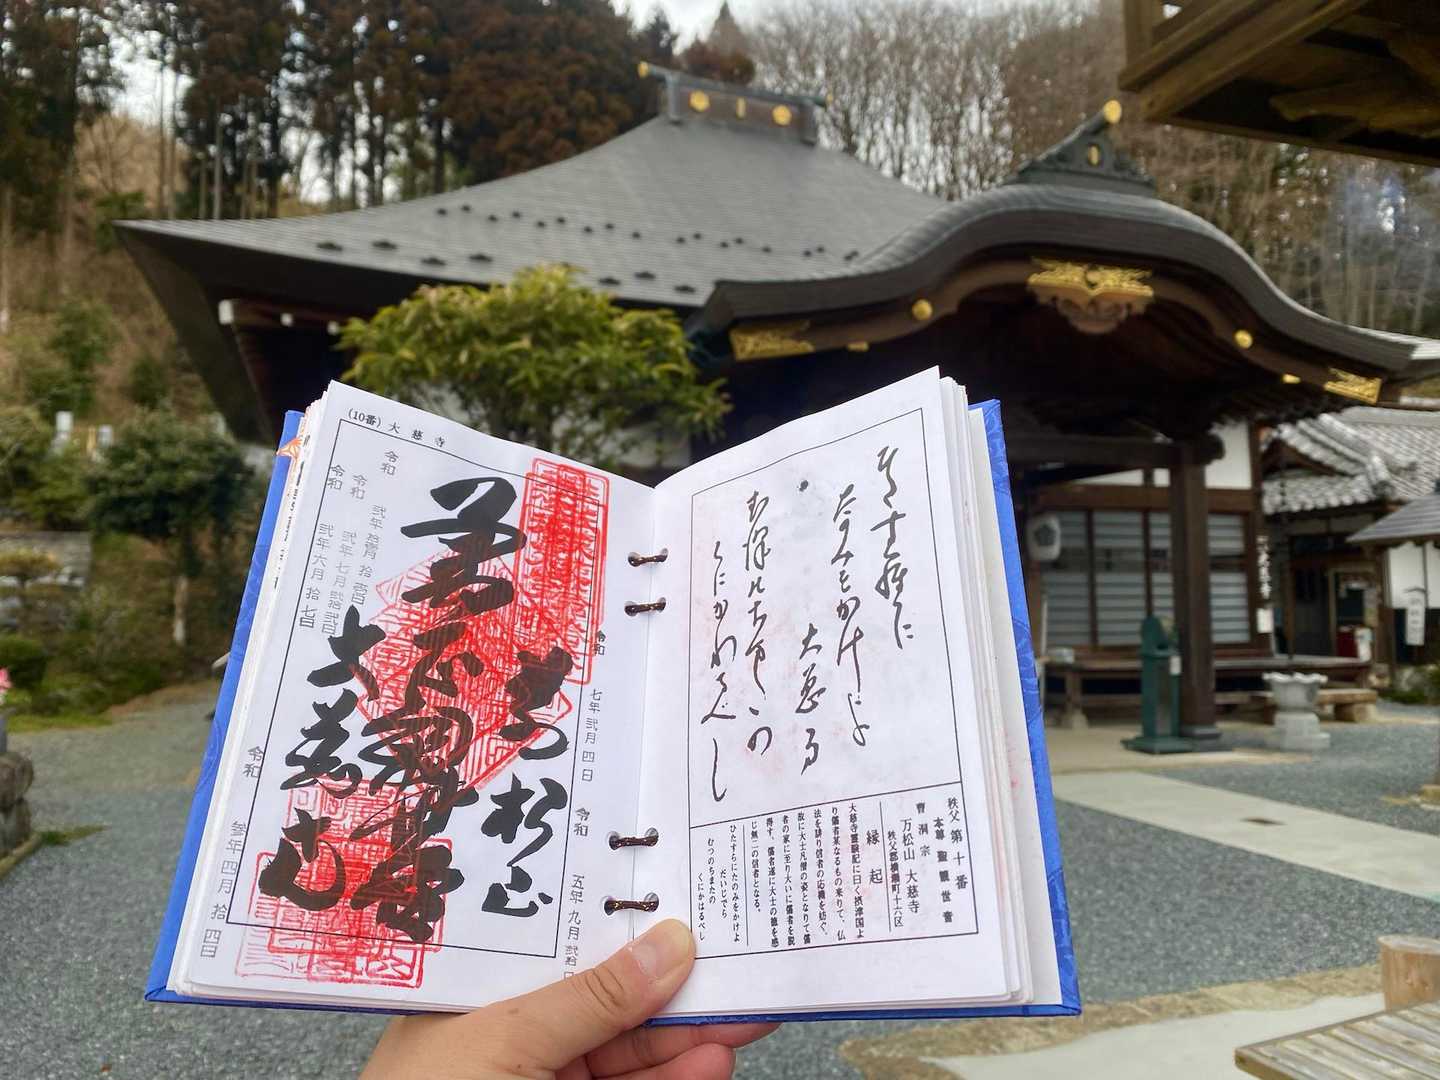 (10番)大慈寺
令和 弐年 拾壱月 拾壱日
令和 弐年 七月 弐拾弐日
令和 弐年 六月 拾七日
令和 七年 弐月 四日
令和 五年 九月
令和 参年 四月 拾四日
万松山
大慈寺
ひたすらに
たのみをかけよ
大慈寺
むつのちまたの
くにかわるべし
秩父第十番
本尊 聖観世音
曹洞宗
万松山 大慈寺
秩父郡横瀬町十六区
縁起
大慈寺霊験記に曰く摂津国よ
り儒者某なるもの来りて、仏
法を謗り信者の応機を妨ぐ。
故に大士凡僧の姿となりて儒
者の家に至り大いに儒者を説
得す。儒者遂に大士の徳を感
じ無二の信者となる。
ひたすらにたのみをかけよ
だいじでら
むつのちまたの
くにかはるべし